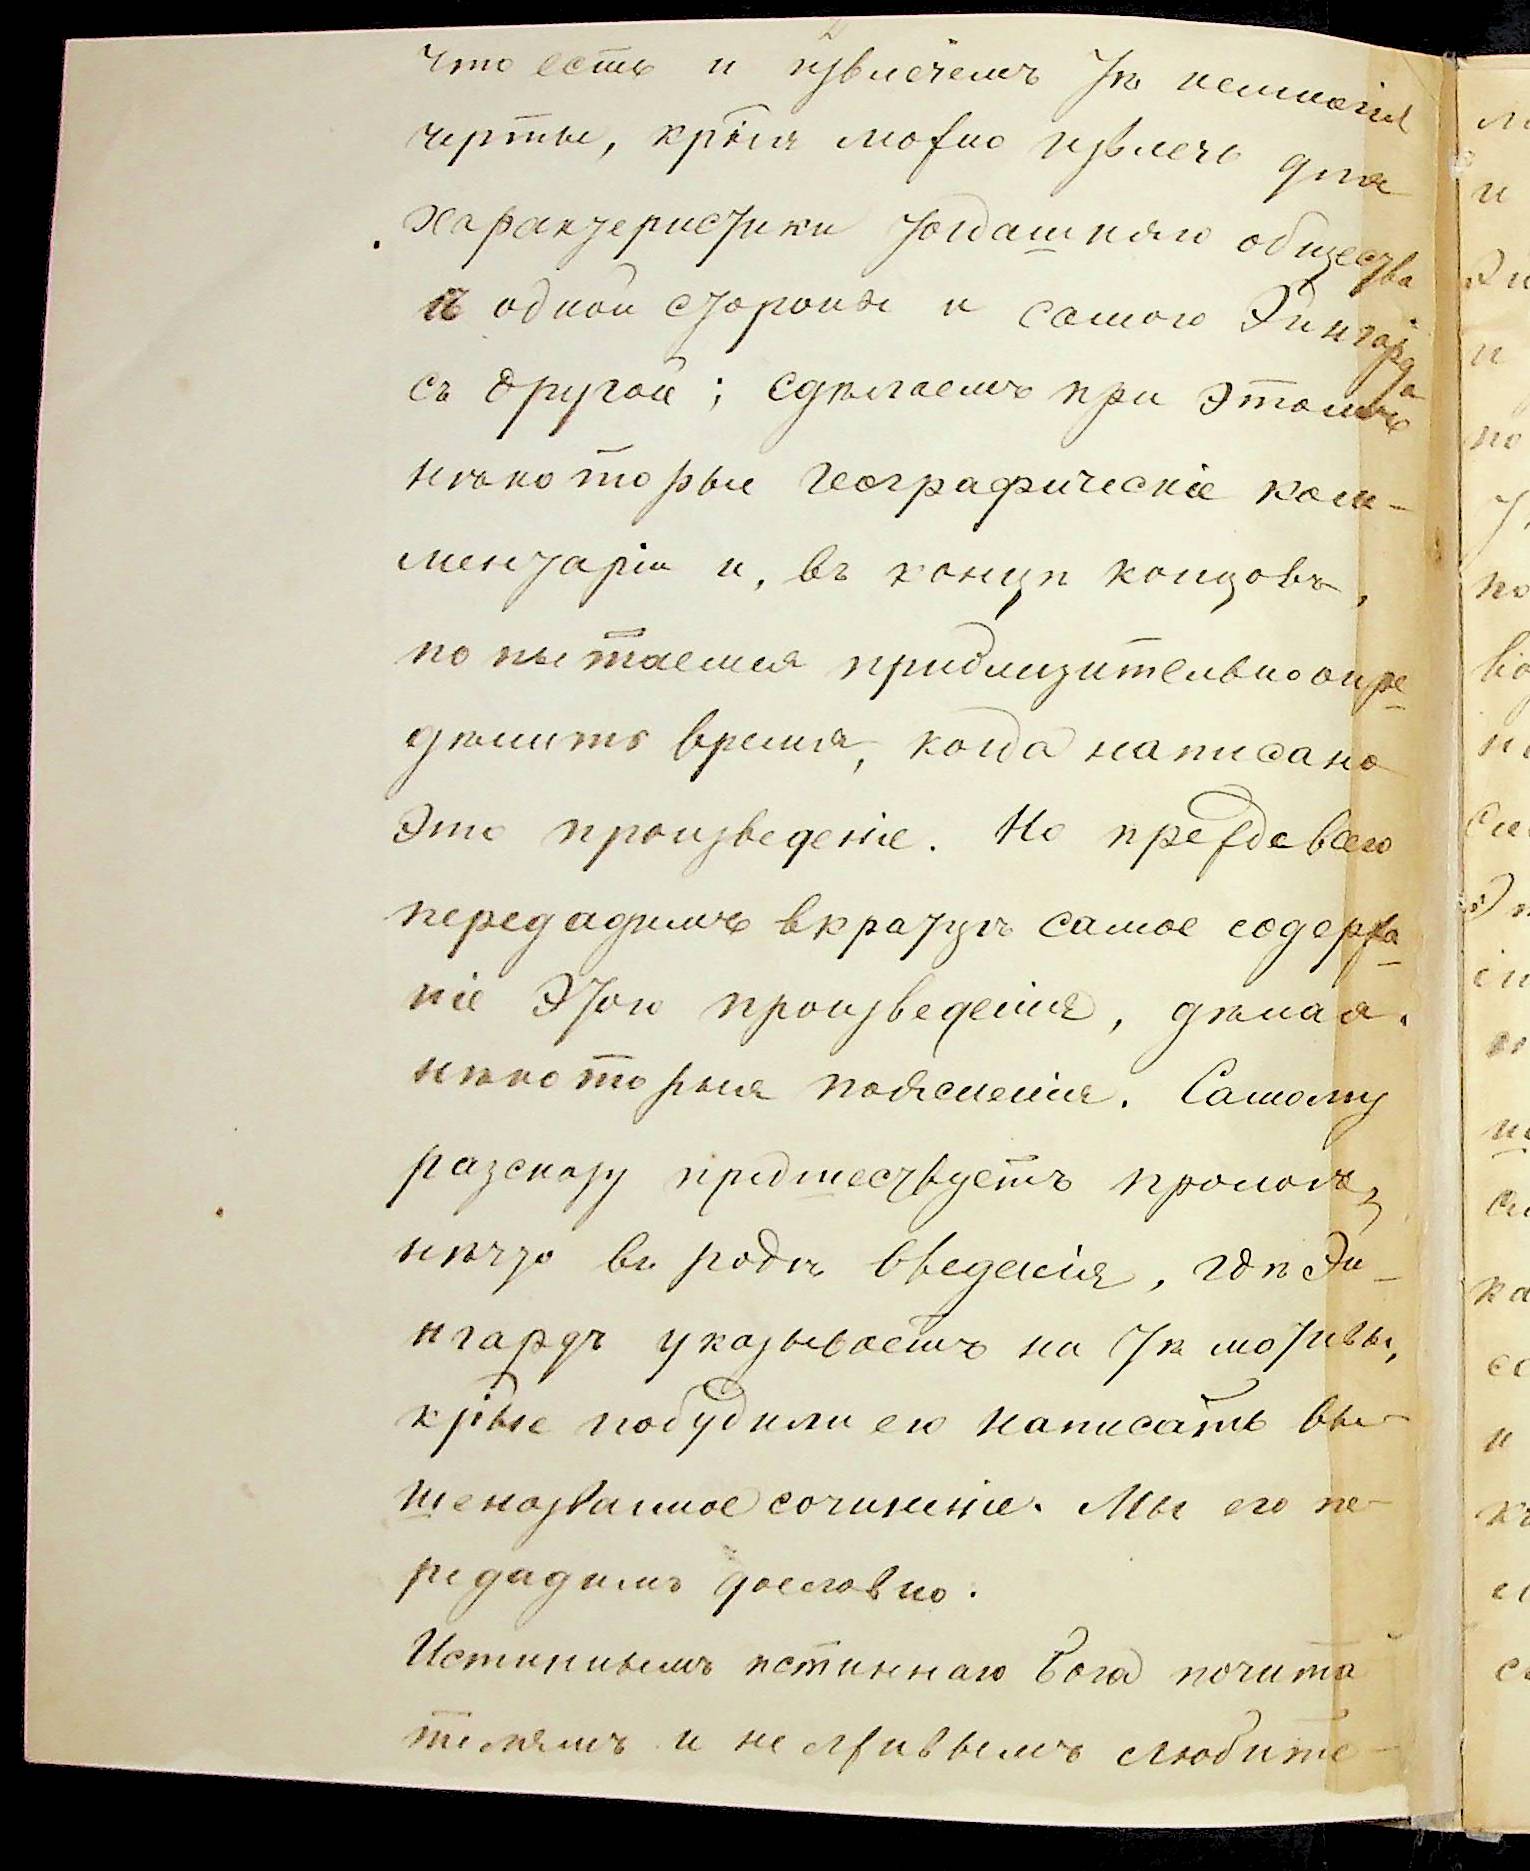 что есть и извлечемъ тѣ немногія
черты, крыя можно извлечь для
характеристики тогдашняго общества
съ одной стороны и самого Эйнгарда
съ другой; сдѣлаемъ при этомъ
нѣкоторые географическіе ком-
ментаріи и, въ концѣ концовъ,
попытаемся приблизительно опре
дѣлить время, когда написано
это произведеніе. Но прежде всего
передадимъ вкратцѣ самое содержа-
ніе этого произведенія, дѣлая
нѣкоторыя поясненія. Самому
разсказу предшествуетъ прологъ,
нѣчто въ родѣ введенія, гдѣ Эй-
нгардъ указываетъ на тѣ мотивы,
крые побудили его написать вы-
шеназванное сочиненіе. Мы его пе-
редадимъ дословно.
Истиннымъ истиннаго Бога почита
телямъ и нелживымъ любите-